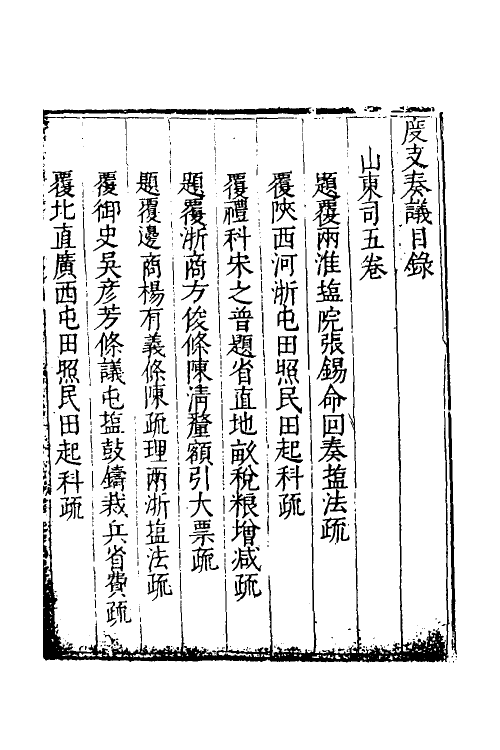 度支奏議目錄
山東司五卷
題覆兩淮塩院張錫命回奏塩法疏
覆陝西河浙屯田照民田起科疏
覆禮科宋之普題省直地畝稅粮增减疏
題覆浙商方俊條陳清釐額引大票疏
題覆邊商楊有義條陳疏理兩浙塩法疏
覆御史吳彥芳條議屯塩鼓鑄裁兵省費疏
覆北直廣西屯田照民田起科疏